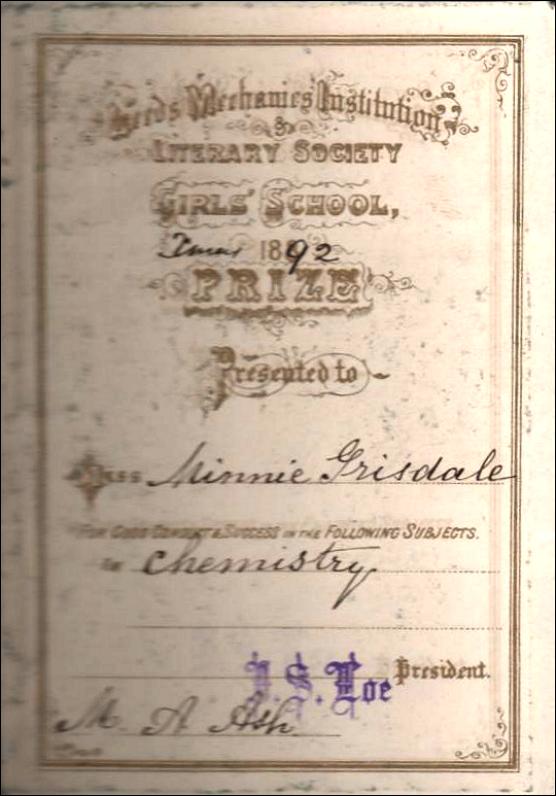 Leeds Mechanics Institution
&
LITERARY SOCIETY
GIRLS' SCHOOL,
Xmas 1892
PRIZE
Presented to
Miss Minnie Grisdale
FOR GOOD CONDUCT & SUCCESS IN THE FOLLOWING SUBJECTS.
In Chemistry
President.
M. A. Ash